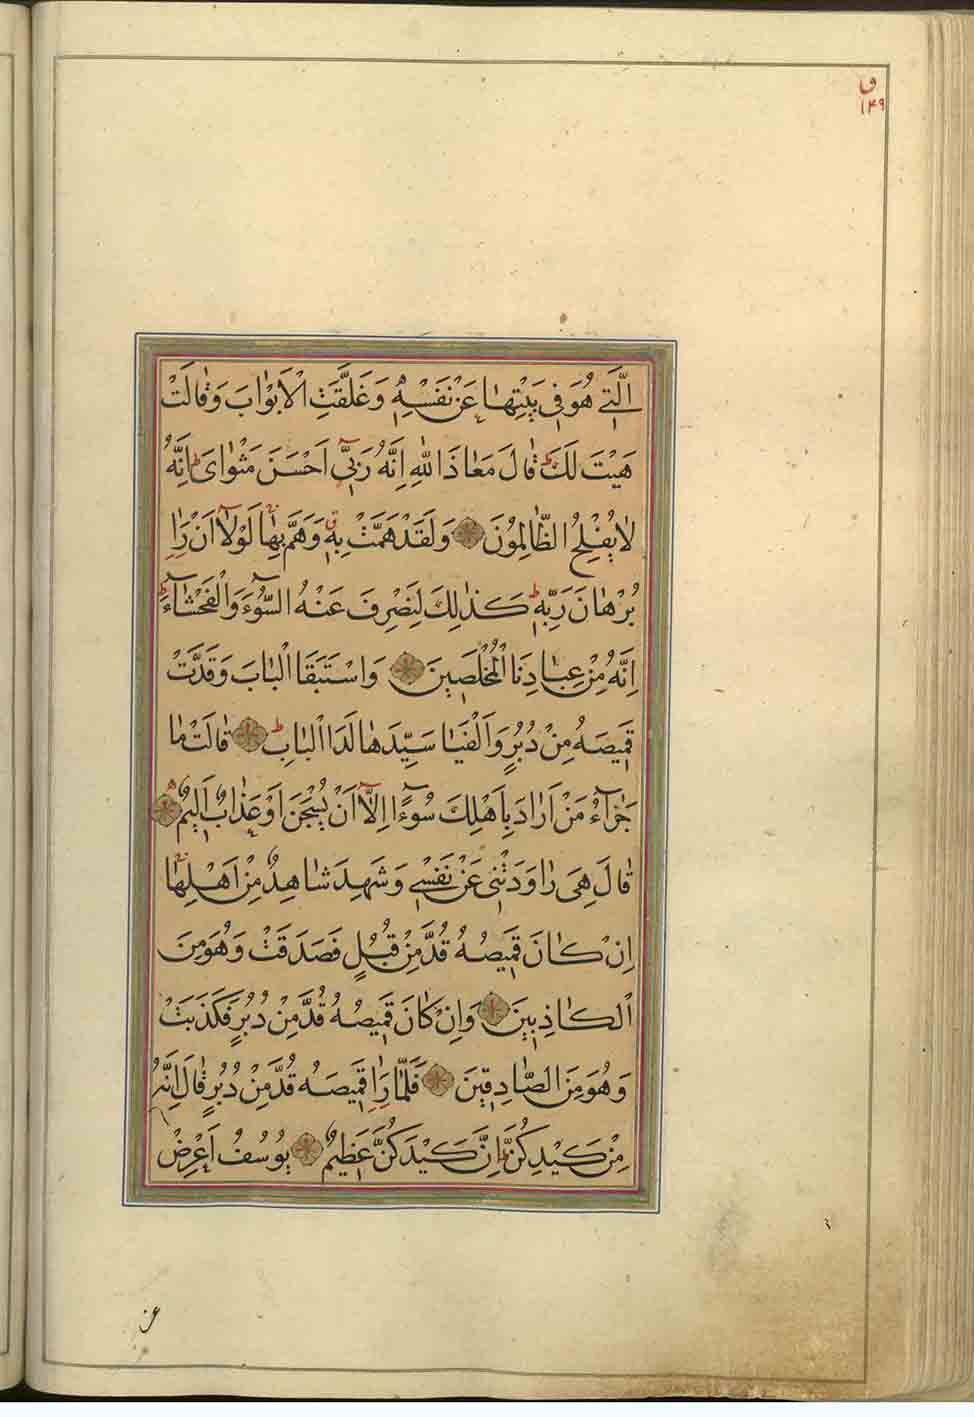 ق
۱۴۹
الَّتِي هُوَ فِي بَيْتِهَا عَنْ نَفْسِهِ وَغَلَّقَتِ الْأَبْوَابَ وَقَالَتْ
هَيْتَ لَكَ ط قَالَ مَعَاذَ اللهِ اِنَّهُ رَبِّي اَحْسَنَ مَثْوَاىَ ط اِنَّهُ
لَا يُفْلِحُ الظَّالِمُونَ وَلَقَدْ هَمَّتْ بِهِ ق وَهَمَّ بِهَا لَوْلَا اَنْ رَاٰ
بُرْهَانَ رَبِّهِ ط كَذَالِكَ لِنَصْرِفَ عَنْهُ السُّوءَ وَالْفَحْشَاءَ ط
اِنَّهُ مِنْ عِبَادِنَا الْمُخْلَصِينَ وَاسْتَبَقَا الْبَابَ وَقَدَّتْ
قَمِيصَهُ مِنْ دُبُرٍ وَاَلْفَيَا سَيِّدَهَا لَدَا الْبَابِ ط قَالَتْ مَا
جَزَاءُ مَنْ اَرَادَ بِاَهْلِكَ سُوءًا اِلَّا اَنْ يُسْجَنَ اَوْ عَذَابٌ اَلِيمٌ
قَالَ هِىَ رَاوَدَتْنِى عَنْ نَفْسِي وَشَهِدَ شَاهِدٌ مِنْ اَهْلِهَا
اِنْ كَانَ قَمِيصُهُ قُدَّ مِنْ قُبُلٍ فَصَدَقَتْ وَهُوَ مِنَ
الْكَاذِبِينَ وَاِنْ كَانَ قَمِيصُهُ قُدَّ مِنْ دُبُرٍ فَكَذَبَتْ
وَهُوَ مِنَ الصَّادِقِينَ فَلَمَّا رَاٰ قَمِيصَهُ قُدَّ مِنْ دُبُرٍ قَالَ اِنَّهُ
مِنْ كَيْدِكُنَّ ط اِنَّ كَيْدَكُنَّ عَظِيمٌ يُوسُفُ اَعْرِضْ
عن